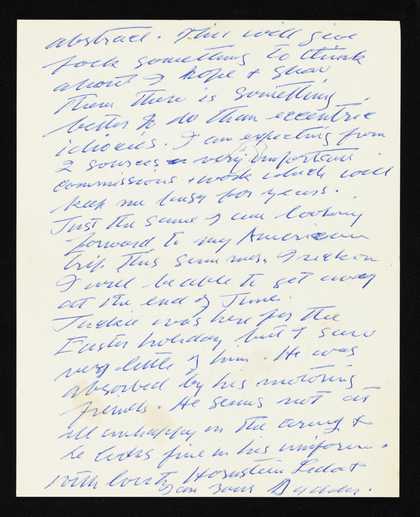 abstract. This will give
folk something to think
about I hope & show
them there is something
better to do than eccentric
idiocies. I am expecting from
2 sources very important
commissions & work which will
keep me busy for years.
Just the same I am looking
forward to my American
trip this summer. I reckon
I will be able to get away
at the end of June.
was here for the
Easter holiday but I saw
very little of him. He was
absorbed by his motoring
friends. He seems not at
all unhappy in the army &
he looks fine in his uniform.
with love to
I am your